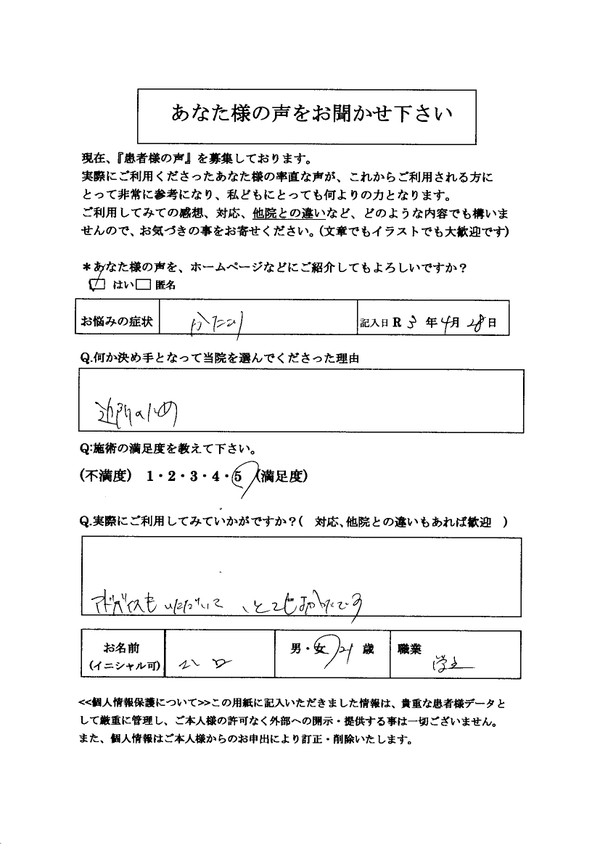 あなた様の声をお聞かせ下さい
現在、『患者様の声』を募集しております。
実際にご利用くださったあなた様の率直な声が、これからご利用される方に
とって非常に参考になり、私どもにとっても何よりの力となります。
ご利用してみての感想、対応、他院との違いなど、どのような内容でも構いま
せんので、お気づきの事をお寄せください。(文章でもイラストでも大歓迎です)
＊あなた様の声を、ホームページなどにご紹介してもよろしいですか？
はい 匿名
お悩みの症状 記入日 R 3 年 4月 28 日
Q.何か決め手となって当院を選んでくださった理由
近所のため
Q:施術の満足度を教えて下さい。
(不満度) 1・2・3・4・5 (満足度)
Q.実際にご利用してみていかがですか？( 対応、他院との違いもあれば歓迎 )
アドバイスも いただいて、とても
お名前 男・女 21 歳 職業 学生
(イニシャル可)
<<個人情報保護について>>この用紙に記入いただきました情報は、貴重な患者様データと
して厳重に管理し、ご本人様の許可なく外部への開示・提供する事は一切ございません。
また、個人情報はご本人様からのお申出により訂正・削除いたします。